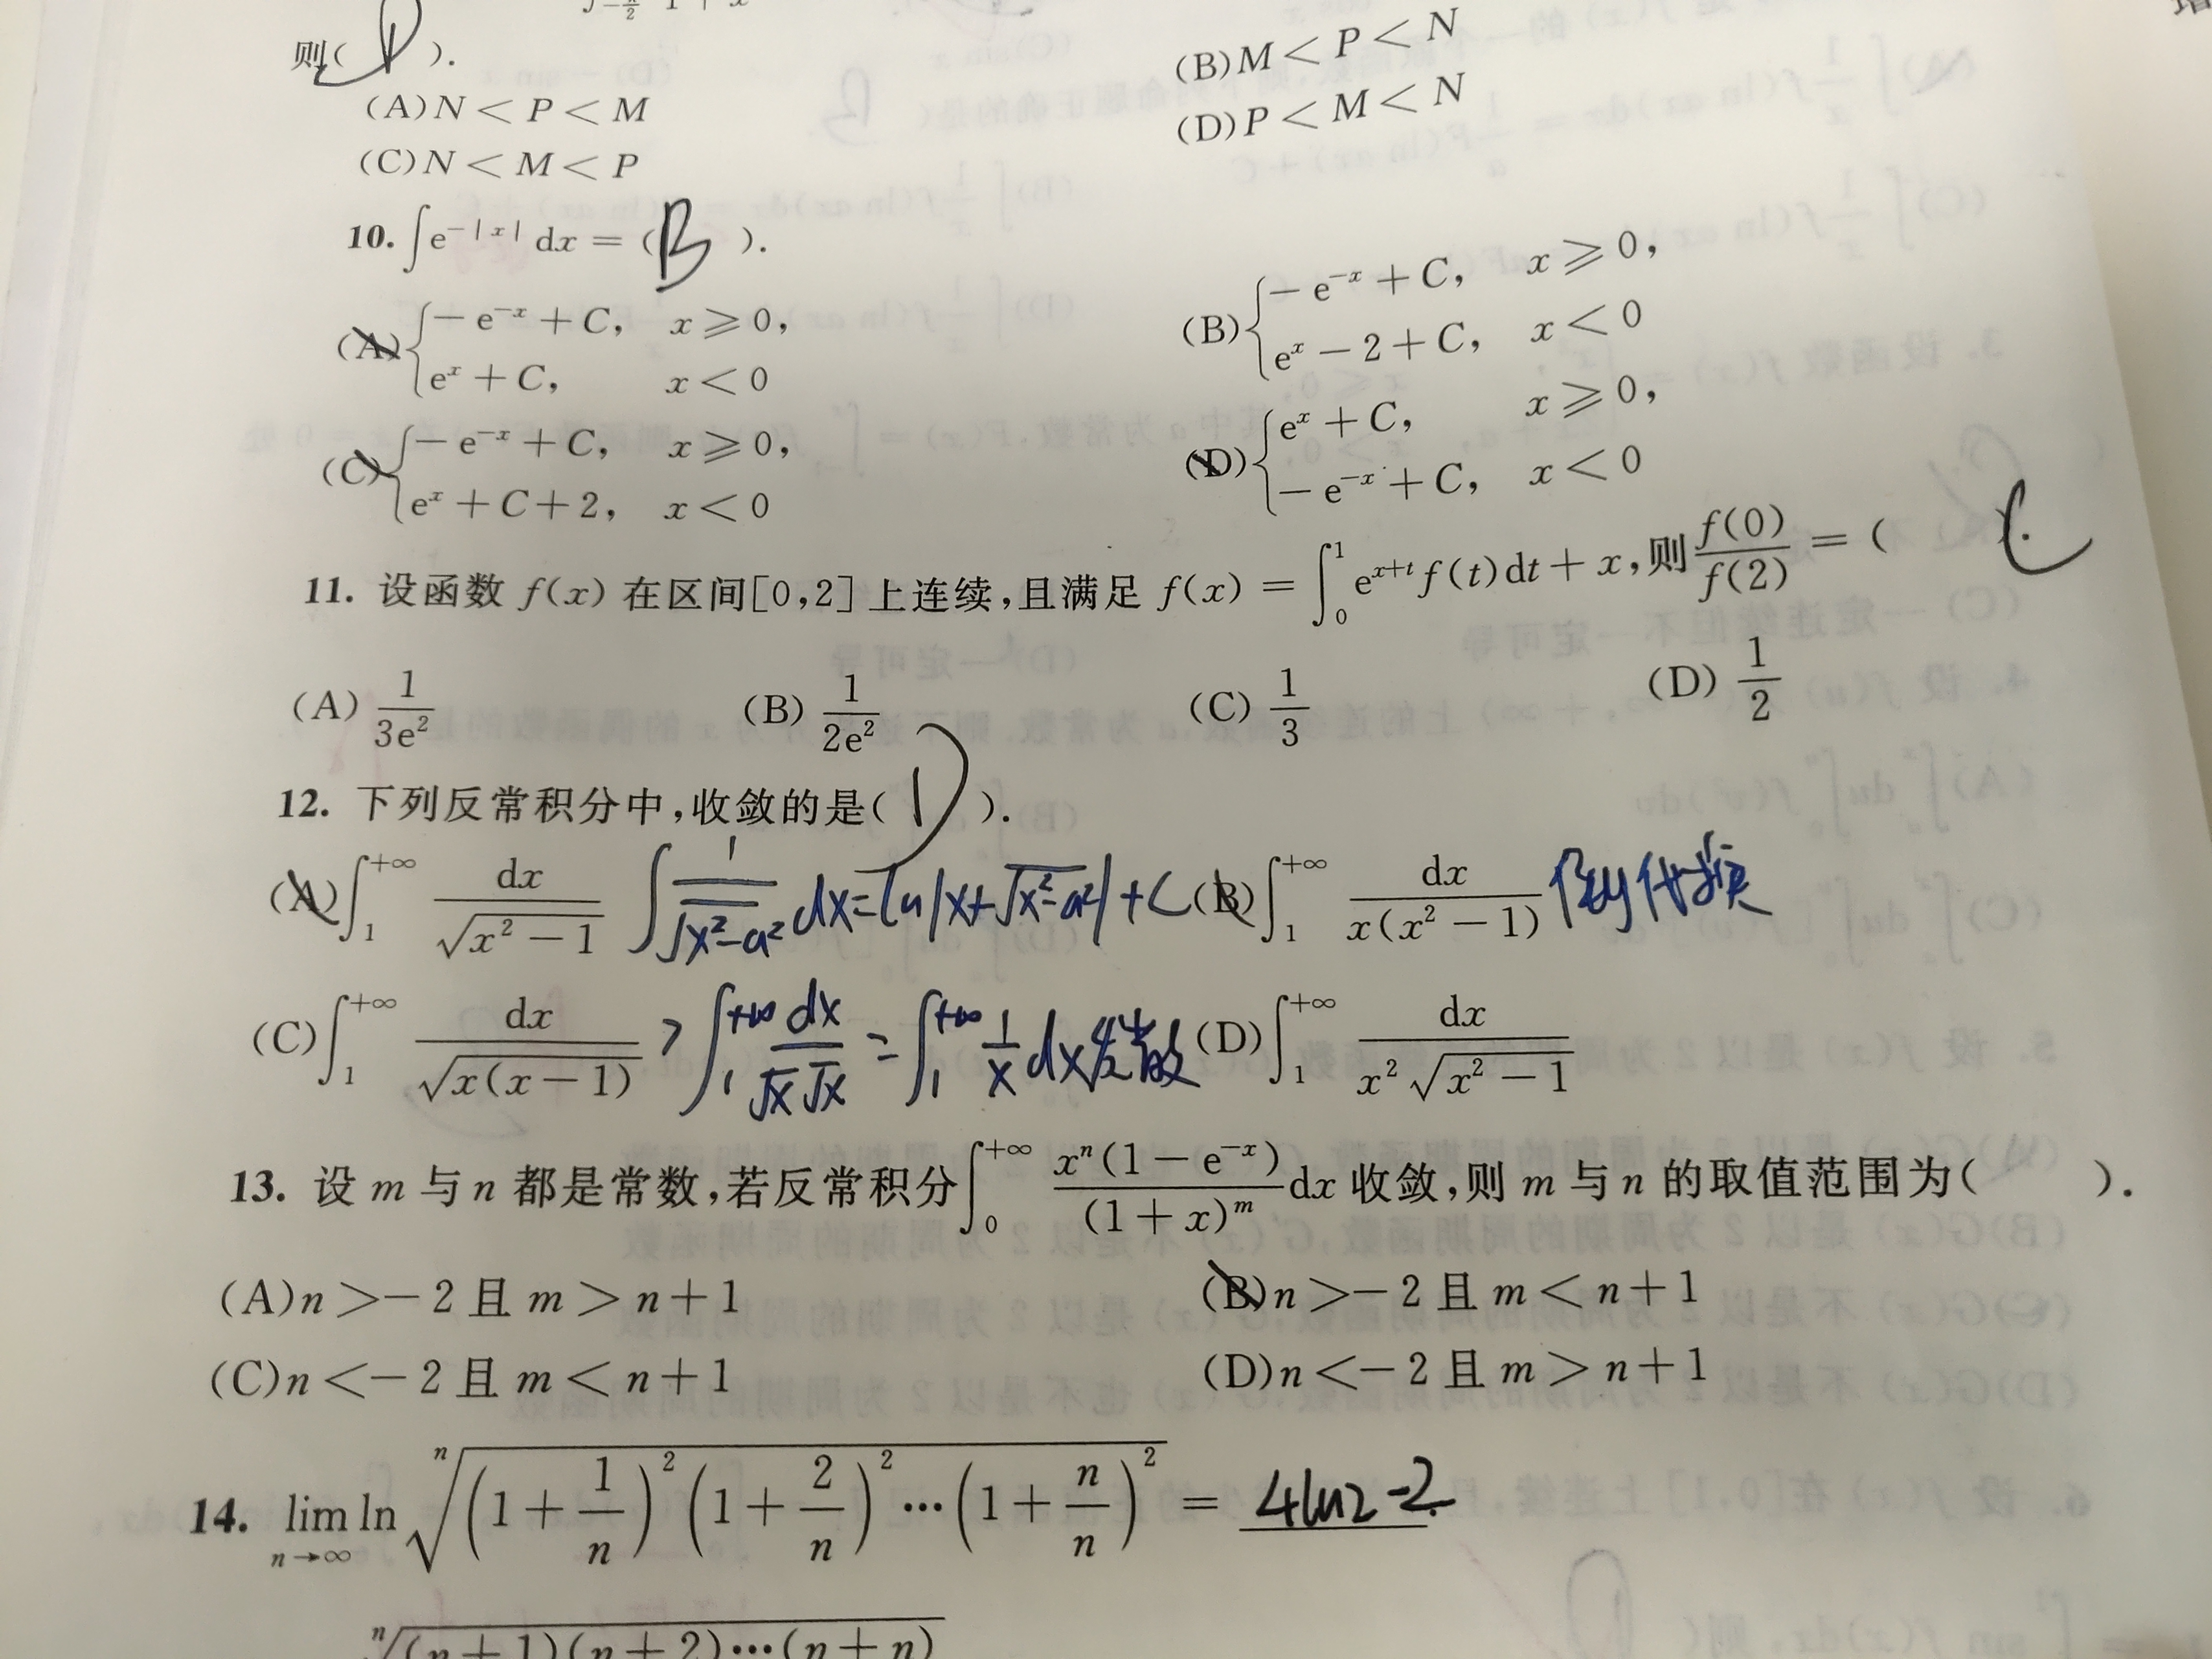 则( D ).
(A)N < P < M (B)M < P < N
(C)N < M < P (D)P < M < N
10. ∫e^{-|x|} dx = ( B ).
(A){ -e^{-x} + C, x ⩾ 0, e^x + C, x < 0 (B){ -e^{-x} + C, x ⩾ 0, e^x - 2 + C, x < 0
(C){ -e^{-x} + C, x ⩾ 0, e^x + C + 2, x < 0 (D){ e^x + C, x ⩾ 0, -e^{-x} + C, x < 0
11. 设函数 f(x) 在区间[0,2]上连续,且满足 f(x) = ∫_0^1 e^{x+t} f(t)dt + x,则 f(0)/f(2) = ( C ).
(A) 1/(3e^2) (B) 1/(2e^2) (C) 1/3 (D) 1/2
12. 下列反常积分中,收敛的是( D ).
(A)∫_1^{+∞} dx/√(x^2-1) ∫ 1/√(x^2-a^2) dx = ln|x+√(x^2-a^2)| + C (B)∫_1^{+∞} dx/(x(x^2-1)) 倒代换
(C)∫_1^{+∞} dx/√(x(x-1)) > ∫_1^{+∞} dx/(√x√x) = ∫_1^{+∞} 1/x dx发散 (D)∫_1^{+∞} dx/(x^2√(x^2-1))
13. 设 m 与 n 都是常数,若反常积分∫_0^{+∞} x^n(1-e^{-x})/(1+x)^m dx 收敛,则 m 与 n 的取值范围为( ).
(A)n >-2 且 m > n+1 (B)n >-2 且 m < n+1
(C)n <-2 且 m < n+1 (D)n <-2 且 m > n+1
14. lim_{n→∞} ln ⁿ√((1+1/n)^2 (1+2/n)^2 ⋯ (1+n/n)^2) = 4ln2-2.
ⁿ√((n+1)(n+2)⋯(n+n))